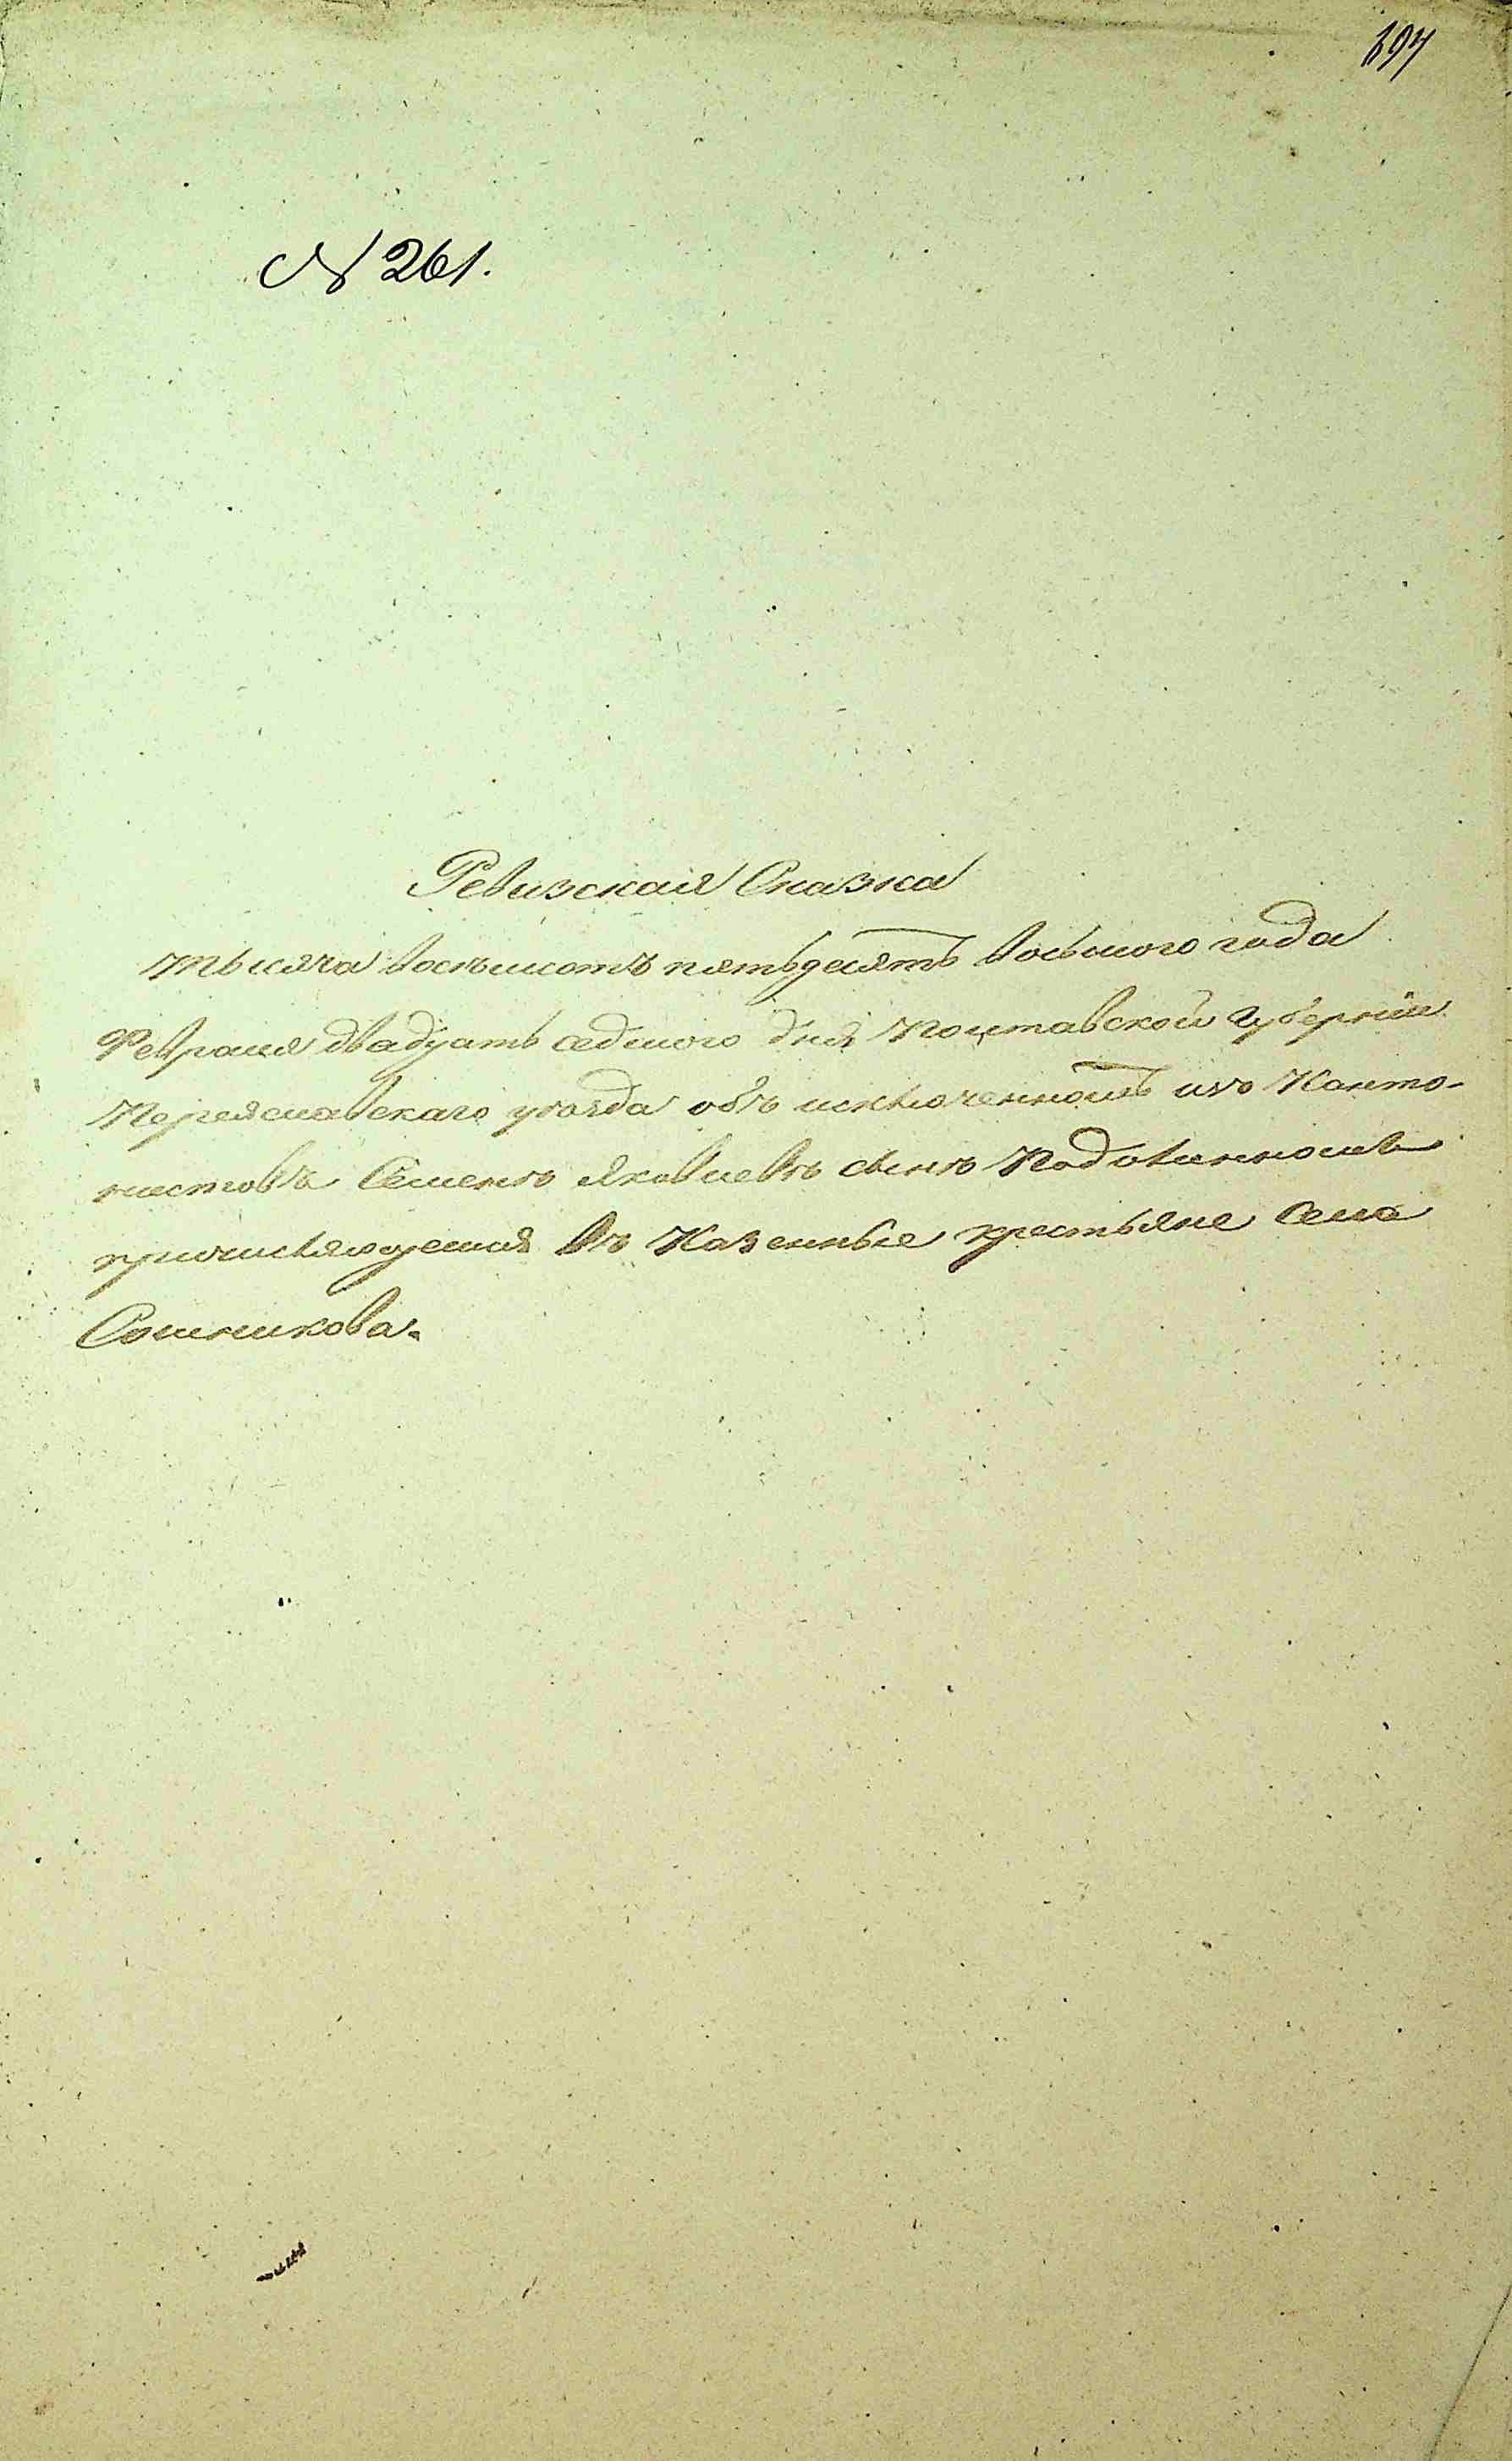 697
№ 261.
Ревизская Сказка
тысяча восемьсотъ пятьдесятъ восьмого года
Февраля двадцать седмого дня Полтавской Губерніи
Переяславскаго уѣзда объ исключенномъ изъ Канто-
нистовъ Семенъ Яковлевъ сынъ
причисляющемся въ Казенные крестьяне Села
Сошникова.